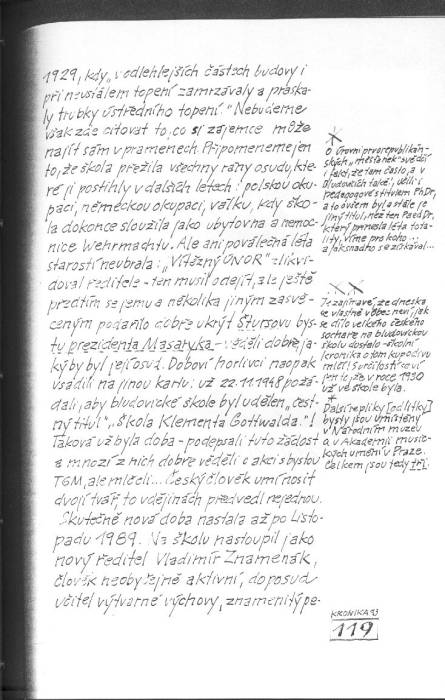 1929, kdy „v odlehlejších částech budovy i
při neustálém topení zamrzávaly a praska-
ly trubky ústředního topení." Nebudeme
však zde citovat to, co si zájemce může
najít sám v pramenech. Připomeneme jen
to, že škola přežila všechny rány osudu, kte-
ré ji postihly v dalších létech: polskou oku-
paci, německou okupaci, válku, kdy ško-
la dokonce sloužila jako ubytovna a nemoc-
nice Wehrmachtu. Ale ani poválečná léta
starostí neubrala: „VÍTĚZNÝ ÚNOR" zlikvi-
doval ředitele - ten musil odejít, ale ještě
předtím se jemu a několika jiným zasvě-
ceným podařilo dobře ukrýt Štursovu bys-
tu prezidenta Masaryka - věděli dobře, ja-
ký by byl její osud. Doboví horlivci naopak
vsadili na jinou kartu: už 22.11.1948 požá-
dali, aby bludovické škole byl udělen „čest-
ný titul" „Škola Klementa Gottwalda."!
Taková už byla doba - podepsali tuto žádost
a mnozí z nich dobře věděli o akci s bystou
TGM, ale mlčeli... Český člověk umí nosit
dvojí tvář, to v dějinách předvedl nejednou.
Skutečně nová doba nastala až po listo-
padu 1989. Na školu nastoupil jako
nový ředitel Vladimír Znamenák,
člověk neobyčejně aktivní, doposud
učitel výtvarné výchovy, znamenitý pe-
*
O úrovni prvorepublikán-
ských „měšťanek" svědčí
i fakt, že tam často, a v
Bludovicích také, učili i
pedagogové s titulem PhDr.,
a to ovšem byl a stále je
jiný titul, než ten PaedDr.,
který přinesla léta tota-
lity, víme pro koho...
a jak snadno se získával...
* *
Je zajímavé, že dneska
se vlastně vůbec neví, jak
se dílo velkého českého
sochaře na bludovickou
školu dostalo - školní
kronika o tom kupodivu
mlčí! S určitostí se ví
jen to, že v roce 1930
už ve škole byla.
*
Další repliky [odlitky]
bysty jsou umístěny
v Národním muzeu
a v Akademii múzic-
kých umění v Praze.
Celkem jsou tedy tři.
KRONIKA 93
119